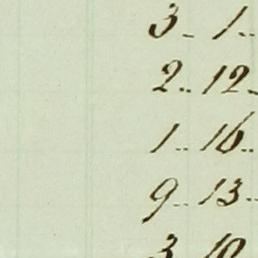 3.. 1..
2.. 12..
1.. 16..
9.. 13..
3 10